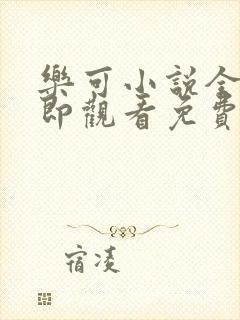 樂可小說全
即觀看免費
宿凌